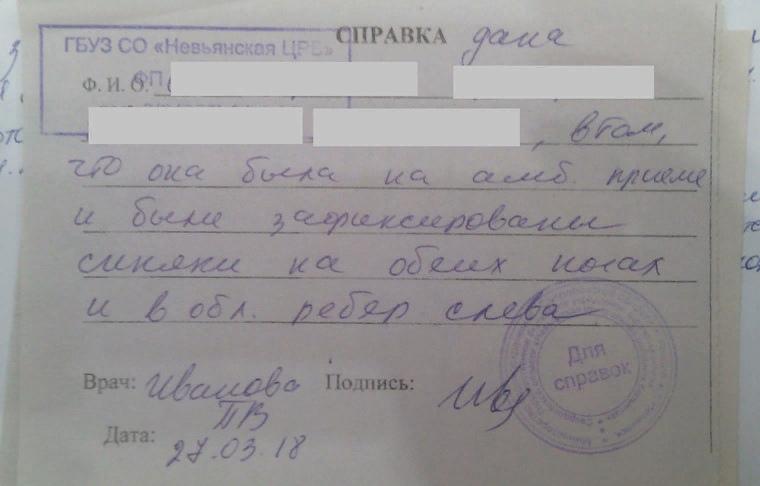 ГБУЗ СО «Невьянская ЦРБ»
СПРАВКА дана
ФП
Ф. И. О.
, в том,
что она была на амб. приеме
и были зафиксированы
синяки на обеих ногах
и в обл. ребер слева
Врач: Иванова Подпись:
ПВ
Дата: 27.03.18
Для
справок